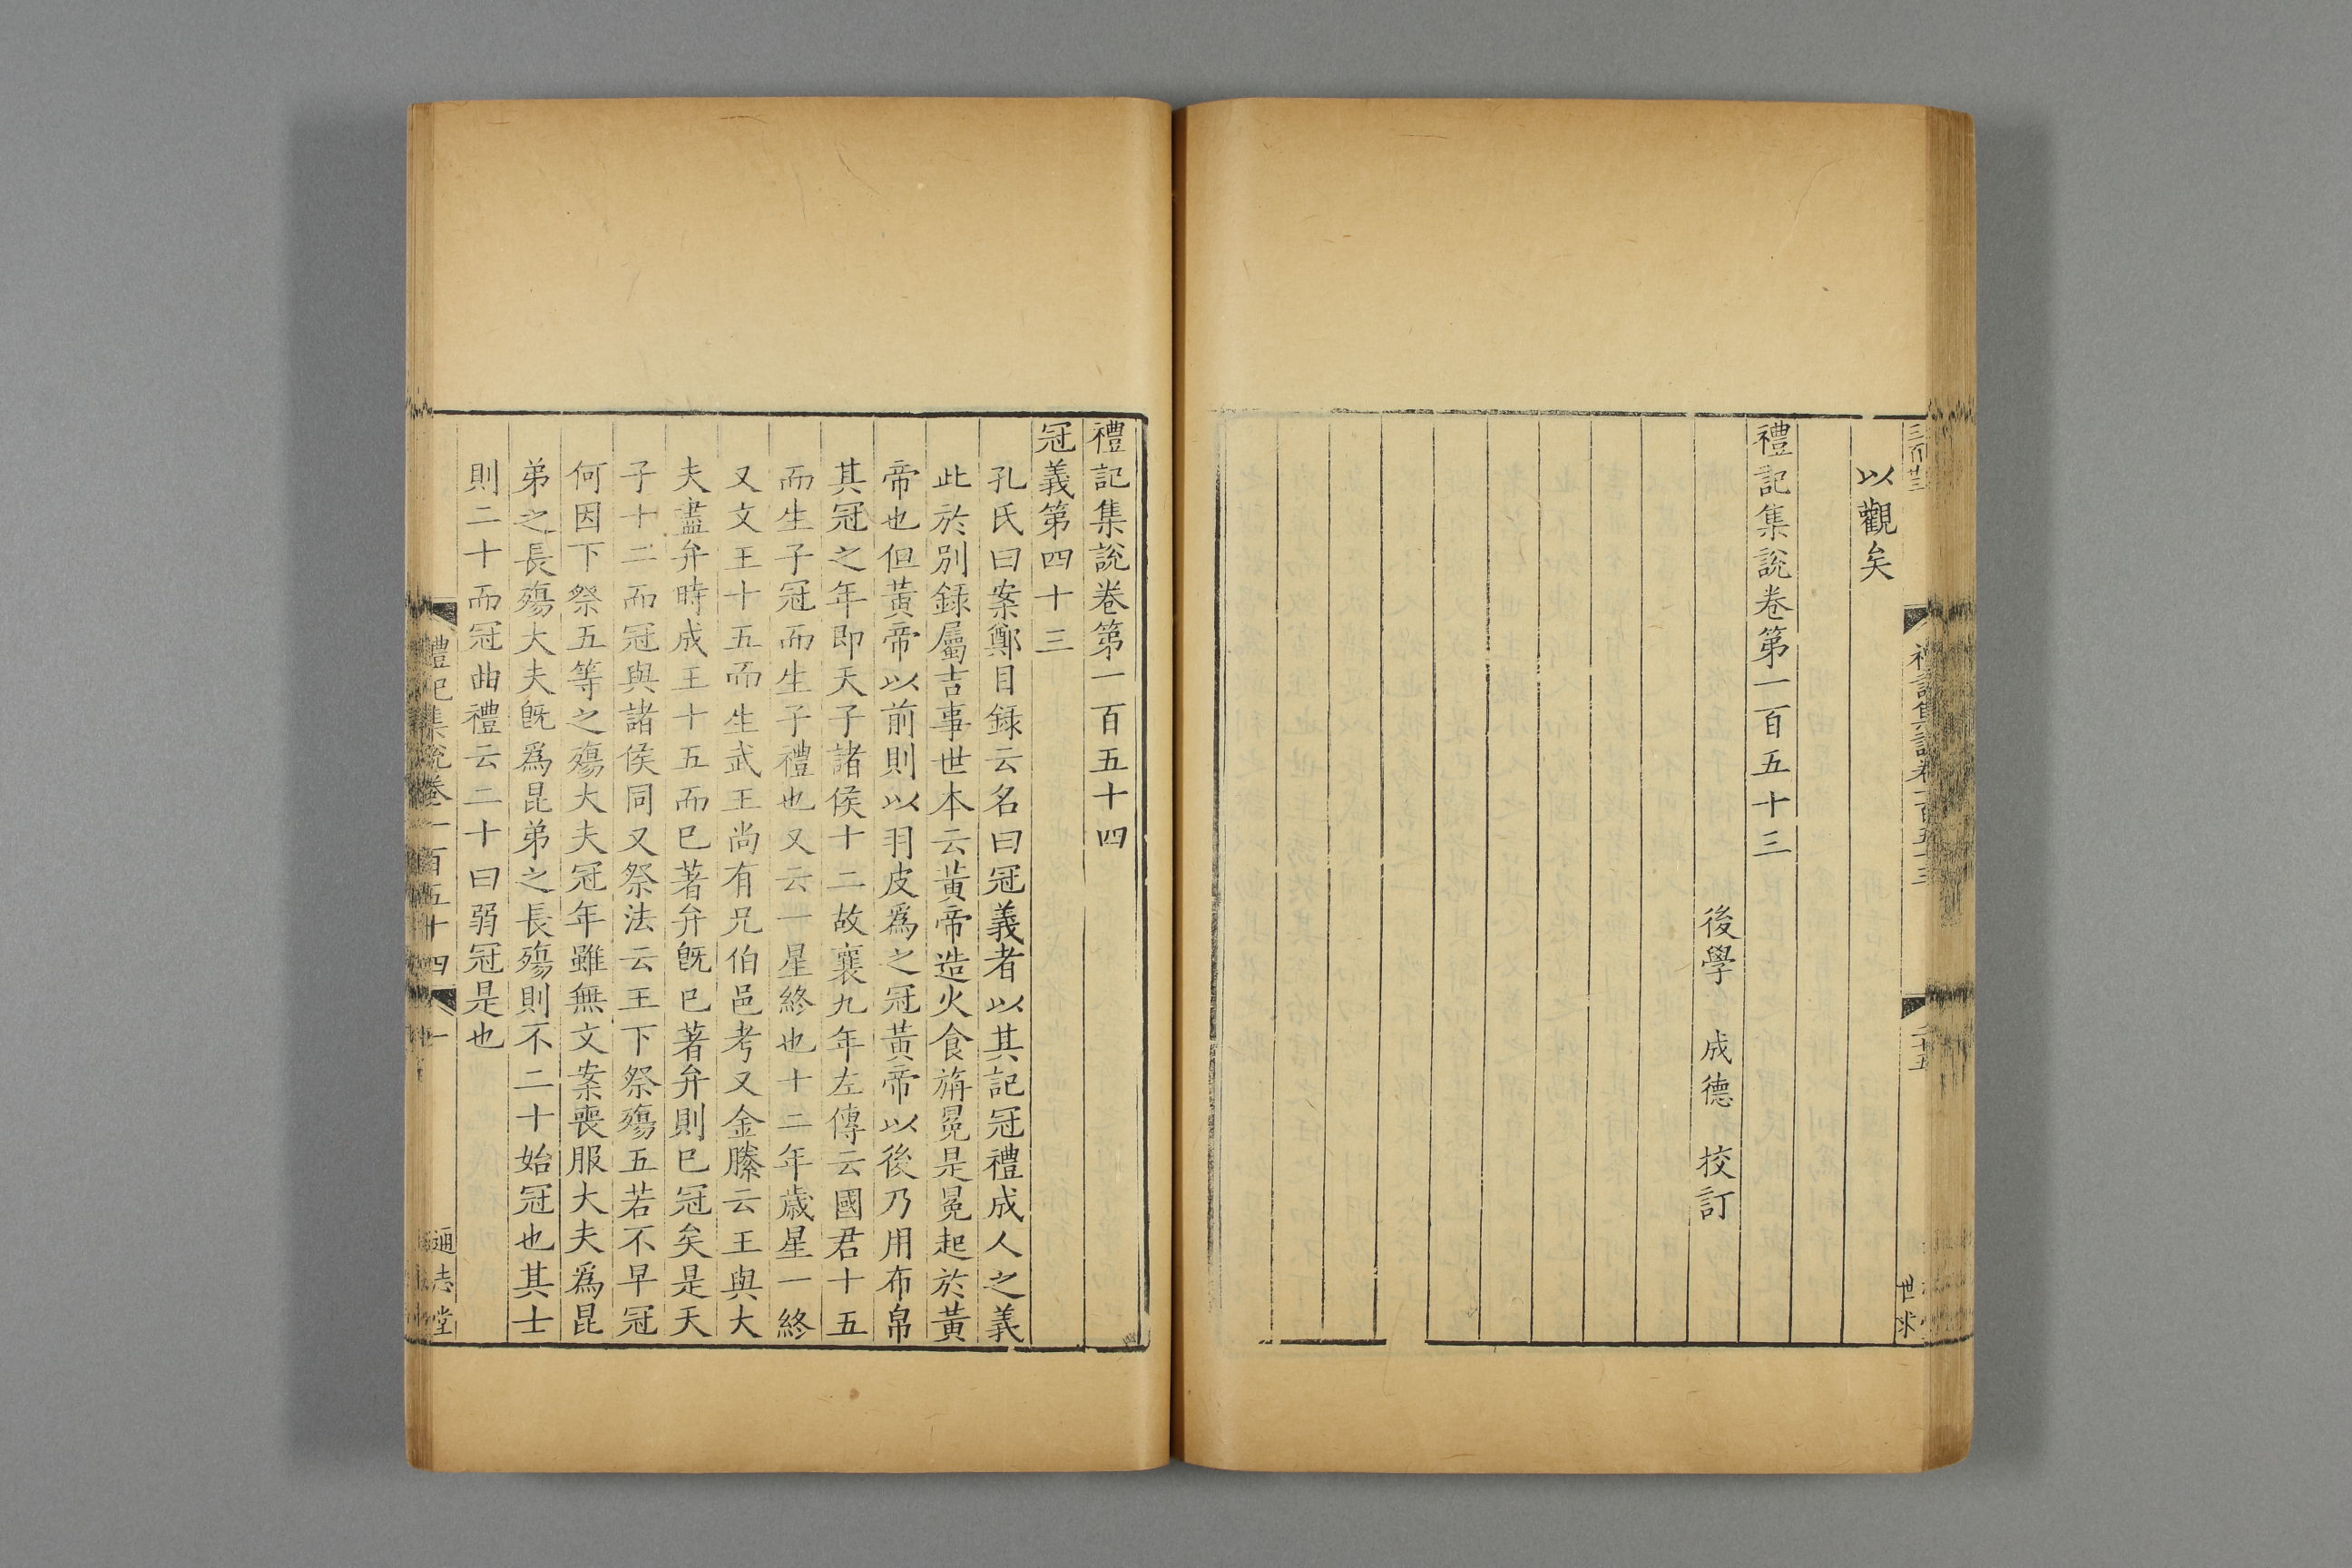 以觀矣
禮記集說卷第一百五十三
後學 成德 挍訂
世求
禮記集說卷第一百五十四
冠義第四十三
孔氏曰案鄭目録云名曰冠義者以其記冠禮成人之義
此於別録屬吉事世本云黃帝造火食旃冕是冕起於黃
帝也但黃帝以前則以羽皮爲之冠黃帝以後乃用布帛
其冠之年即天子諸侯十二故襄九年左傳云國君十五
而生子冠而生子禮也又云一星終也十二年歲星一終
又文王十五而生武王尚有兄伯邑考又金縢云王與大
夫盡弁時成王十五而已著弁旣已著弁則已冠矣是天
子十二而冠與諸侯同又祭法云王下祭殤五若不早冠
何因下祭五等之殤大夫冠年雖無文案喪服大夫爲昆
弟之長殤大夫旣爲昆弟之長殤則不二十始冠也其士
則二十而冠曲禮云二十曰弱冠是也
禮記集說卷一百五十四 一 通志堂